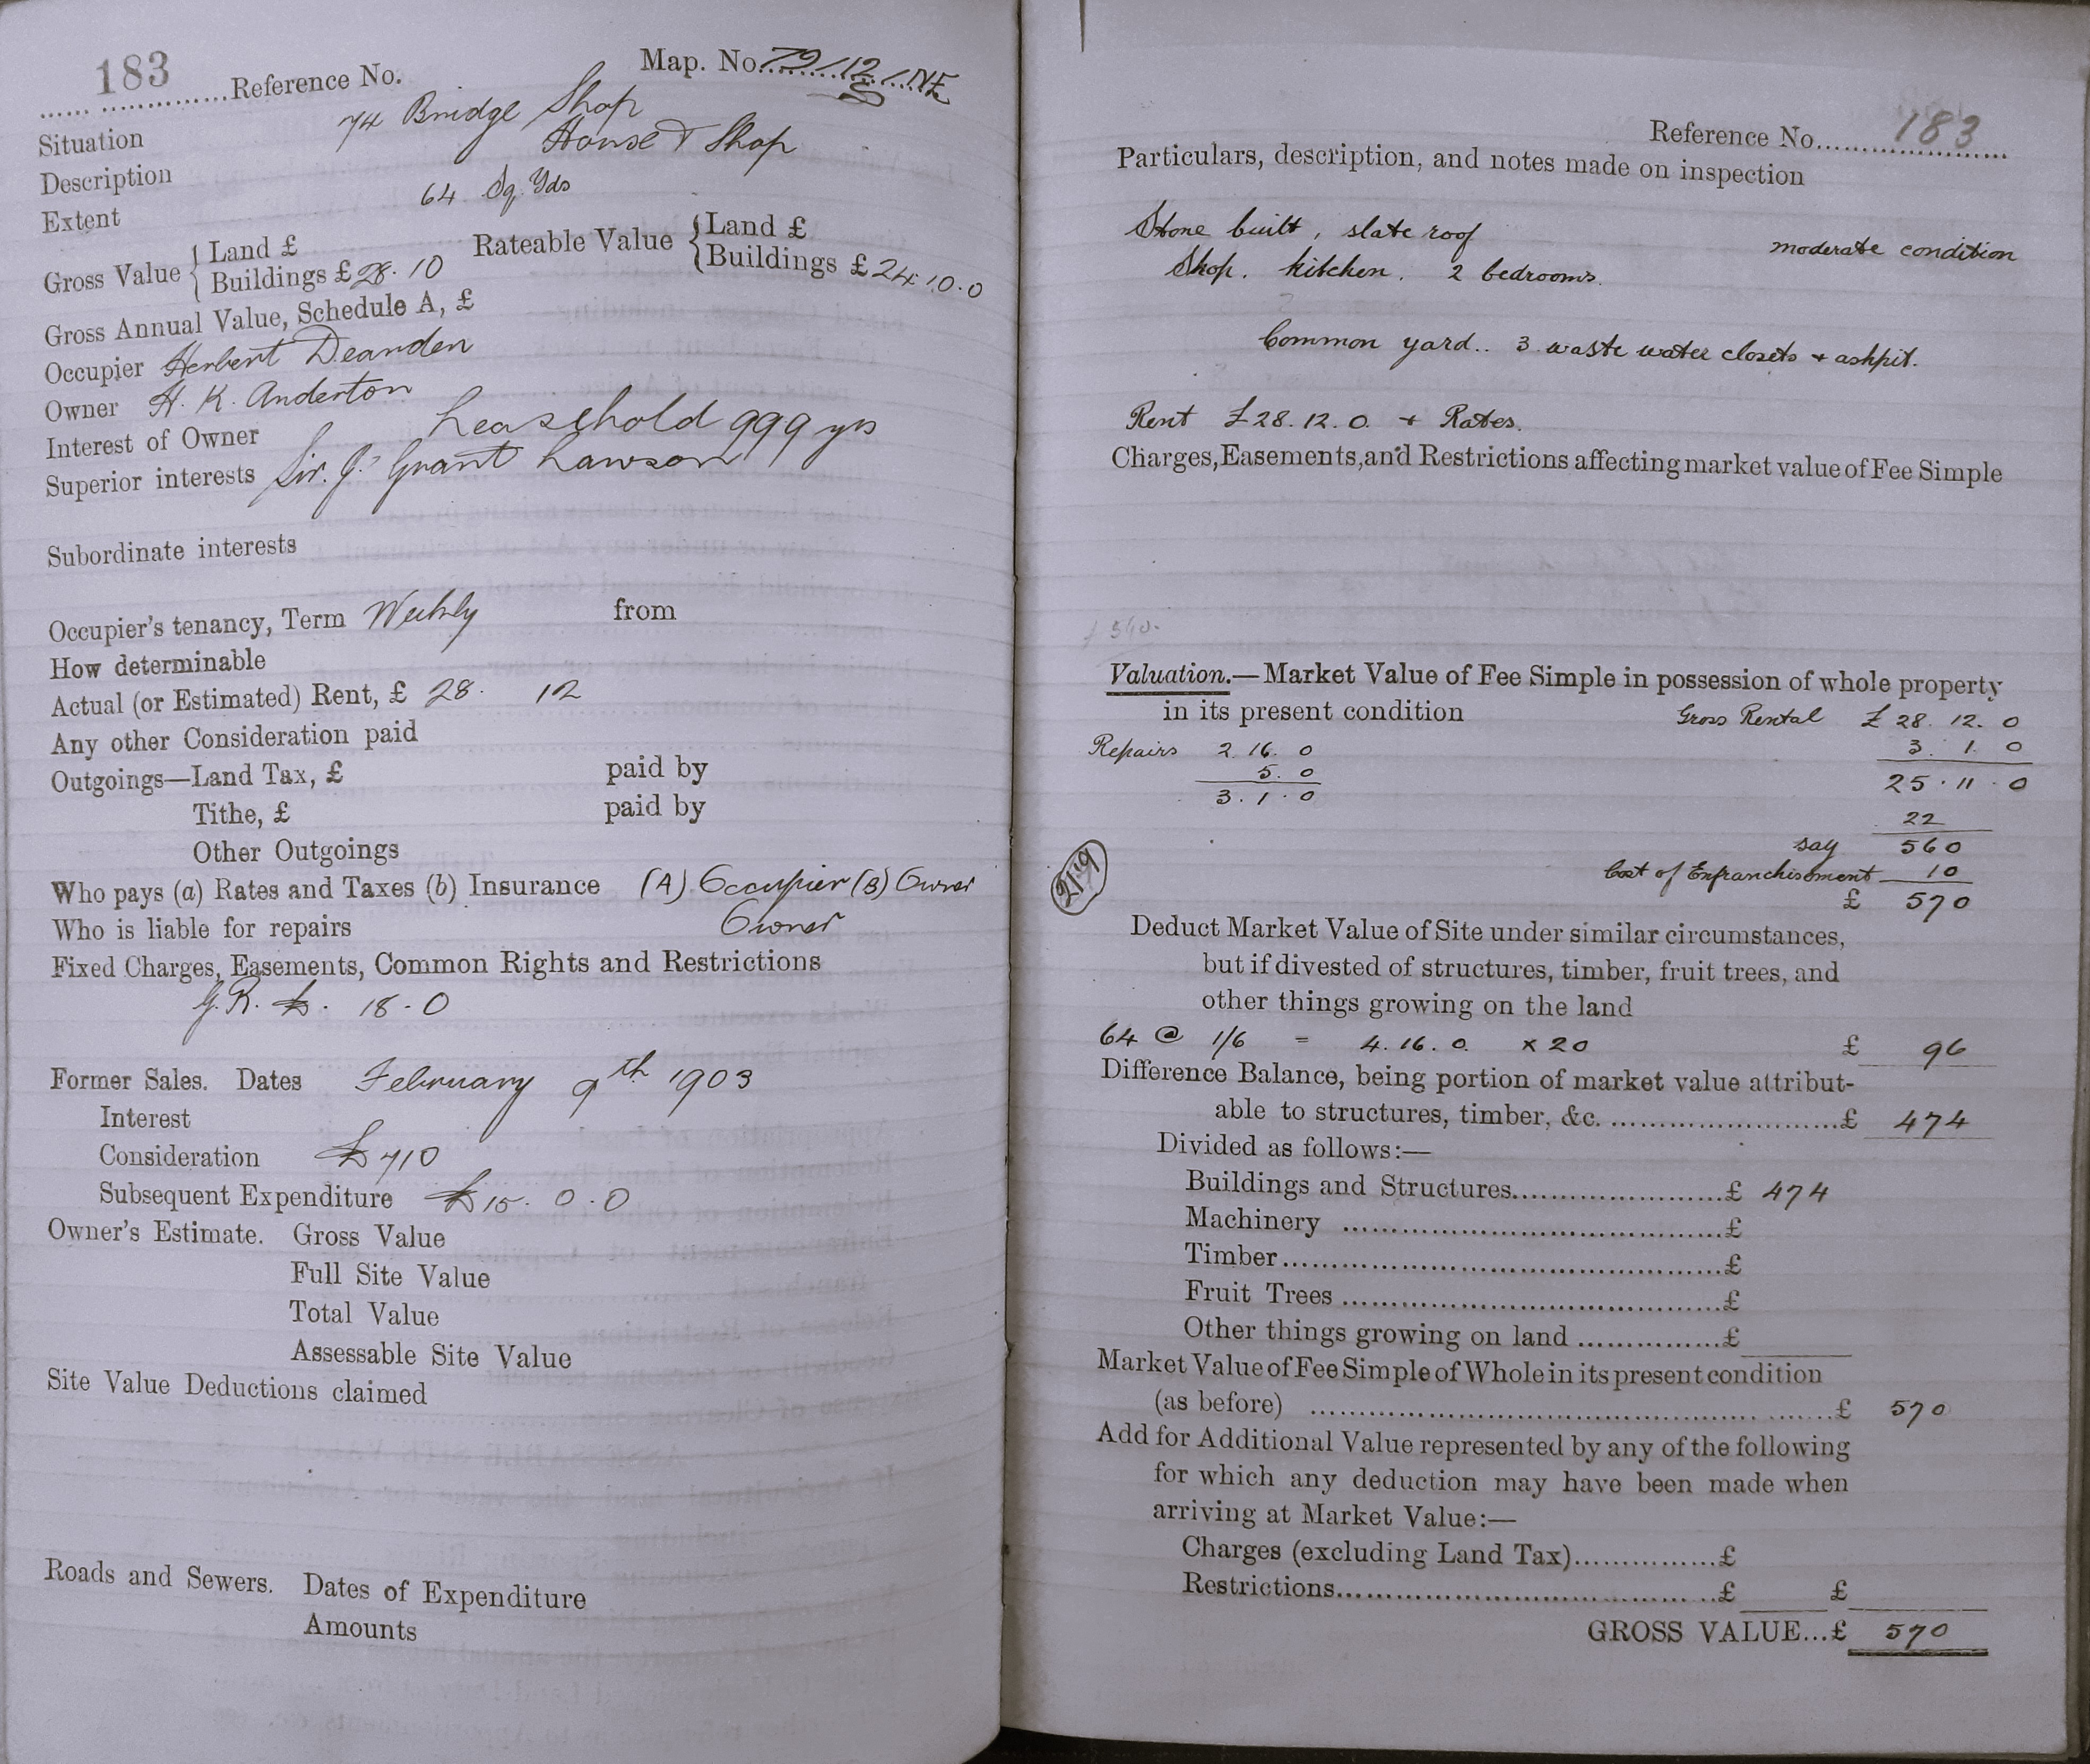 183 Reference No. Map. No. 79/12/NE
8
Situation 74 Bridge Shop
Description House & Shop
Extent 64 Sq. Yds
Gross Value { Land £ Rateable Value { Land £
Buildings £ 28. 10 Buildings £ 24. 10. 0
Gross Annual Value, Schedule A, £
Occupier Herbert Dearden
Owner H. K. Anderton
Interest of Owner Leasehold 999 yrs
Superior interests Sir. J. Grant Lawson
Subordinate interests
Occupier's tenancy, Term Weekly from
How determinable
Actual (or Estimated) Rent, £ 28. 12
Any other Consideration paid
Outgoings—Land Tax, £ paid by
Tithe, £ paid by
Other Outgoings
Who pays (a) Rates and Taxes (b) Insurance (A) Occupier (B) Owner
Who is liable for repairs Owner
Fixed Charges, Easements, Common Rights and Restrictions
G.R. £. 18-0
Former Sales. Dates February 9th 1903
Interest
Consideration £710
Subsequent Expenditure £15. 0. 0
Owner's Estimate. Gross Value
Full Site Value
Total Value
Assessable Site Value
Site Value Deductions claimed
Roads and Sewers. Dates of Expenditure
Amounts
Reference No. 183
Particulars, description, and notes made on inspection
Stone built, slate roof moderate condition
Shop. kitchen. 2 bedrooms.
Common yard.. 3 waste water closets + ashpit.
Rent £28. 12. 0. + Rates.
Charges, Easements, and Restrictions affecting market value of Fee Simple
£ 540.
Valuation.—Market Value of Fee Simple in possession of whole property
in its present condition Gross Rental £ 28. 12. 0
Repairs 2. 16. 0 3. 1. 0
5. 0 25. 11. 0
3. 1. 0
22
say 560
Cost of Enfranchisement 10
£ 570
219
Deduct Market Value of Site under similar circumstances,
but if divested of structures, timber, fruit trees, and
other things growing on the land
64 @ 1/6 = 4. 16. 0. x 20 £ 96
Difference Balance, being portion of market value attribut-
able to structures, timber, &c. £ 474
Divided as follows:—
Buildings and Structures £ 474
Machinery £
Timber £
Fruit Trees £
Other things growing on land £
Market Value of Fee Simple of Whole in its present condition
(as before) £ 570
Add for Additional Value represented by any of the following
for which any deduction may have been made when
arriving at Market Value:—
Charges (excluding Land Tax) £
Restrictions £ £
GROSS VALUE...£ 570